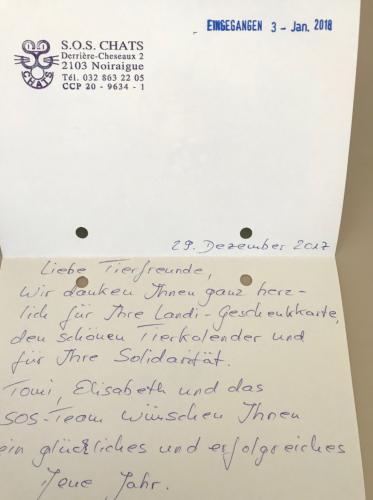 S.O.S. CHATS
Derrière-Cheseaux 2
2103 Noiraigue
Tél. 032 863 22 05
CCP 20 - 9634 - 1
CHATS
EINGEGANGEN 3 - Jan. 2018
29. Dezember 2017
Liebe Tierfreunde,
Wir danken Ihnen ganz herz-
lich für Ihre Landi-Geschenkkarte,
den schönen Tierkalender und
für Ihre Solidarität.
Tomi, Elisabeth und das
SOS-Team wünschen Ihnen
ein glückliches und erfolgreiches
Neue Jahr.